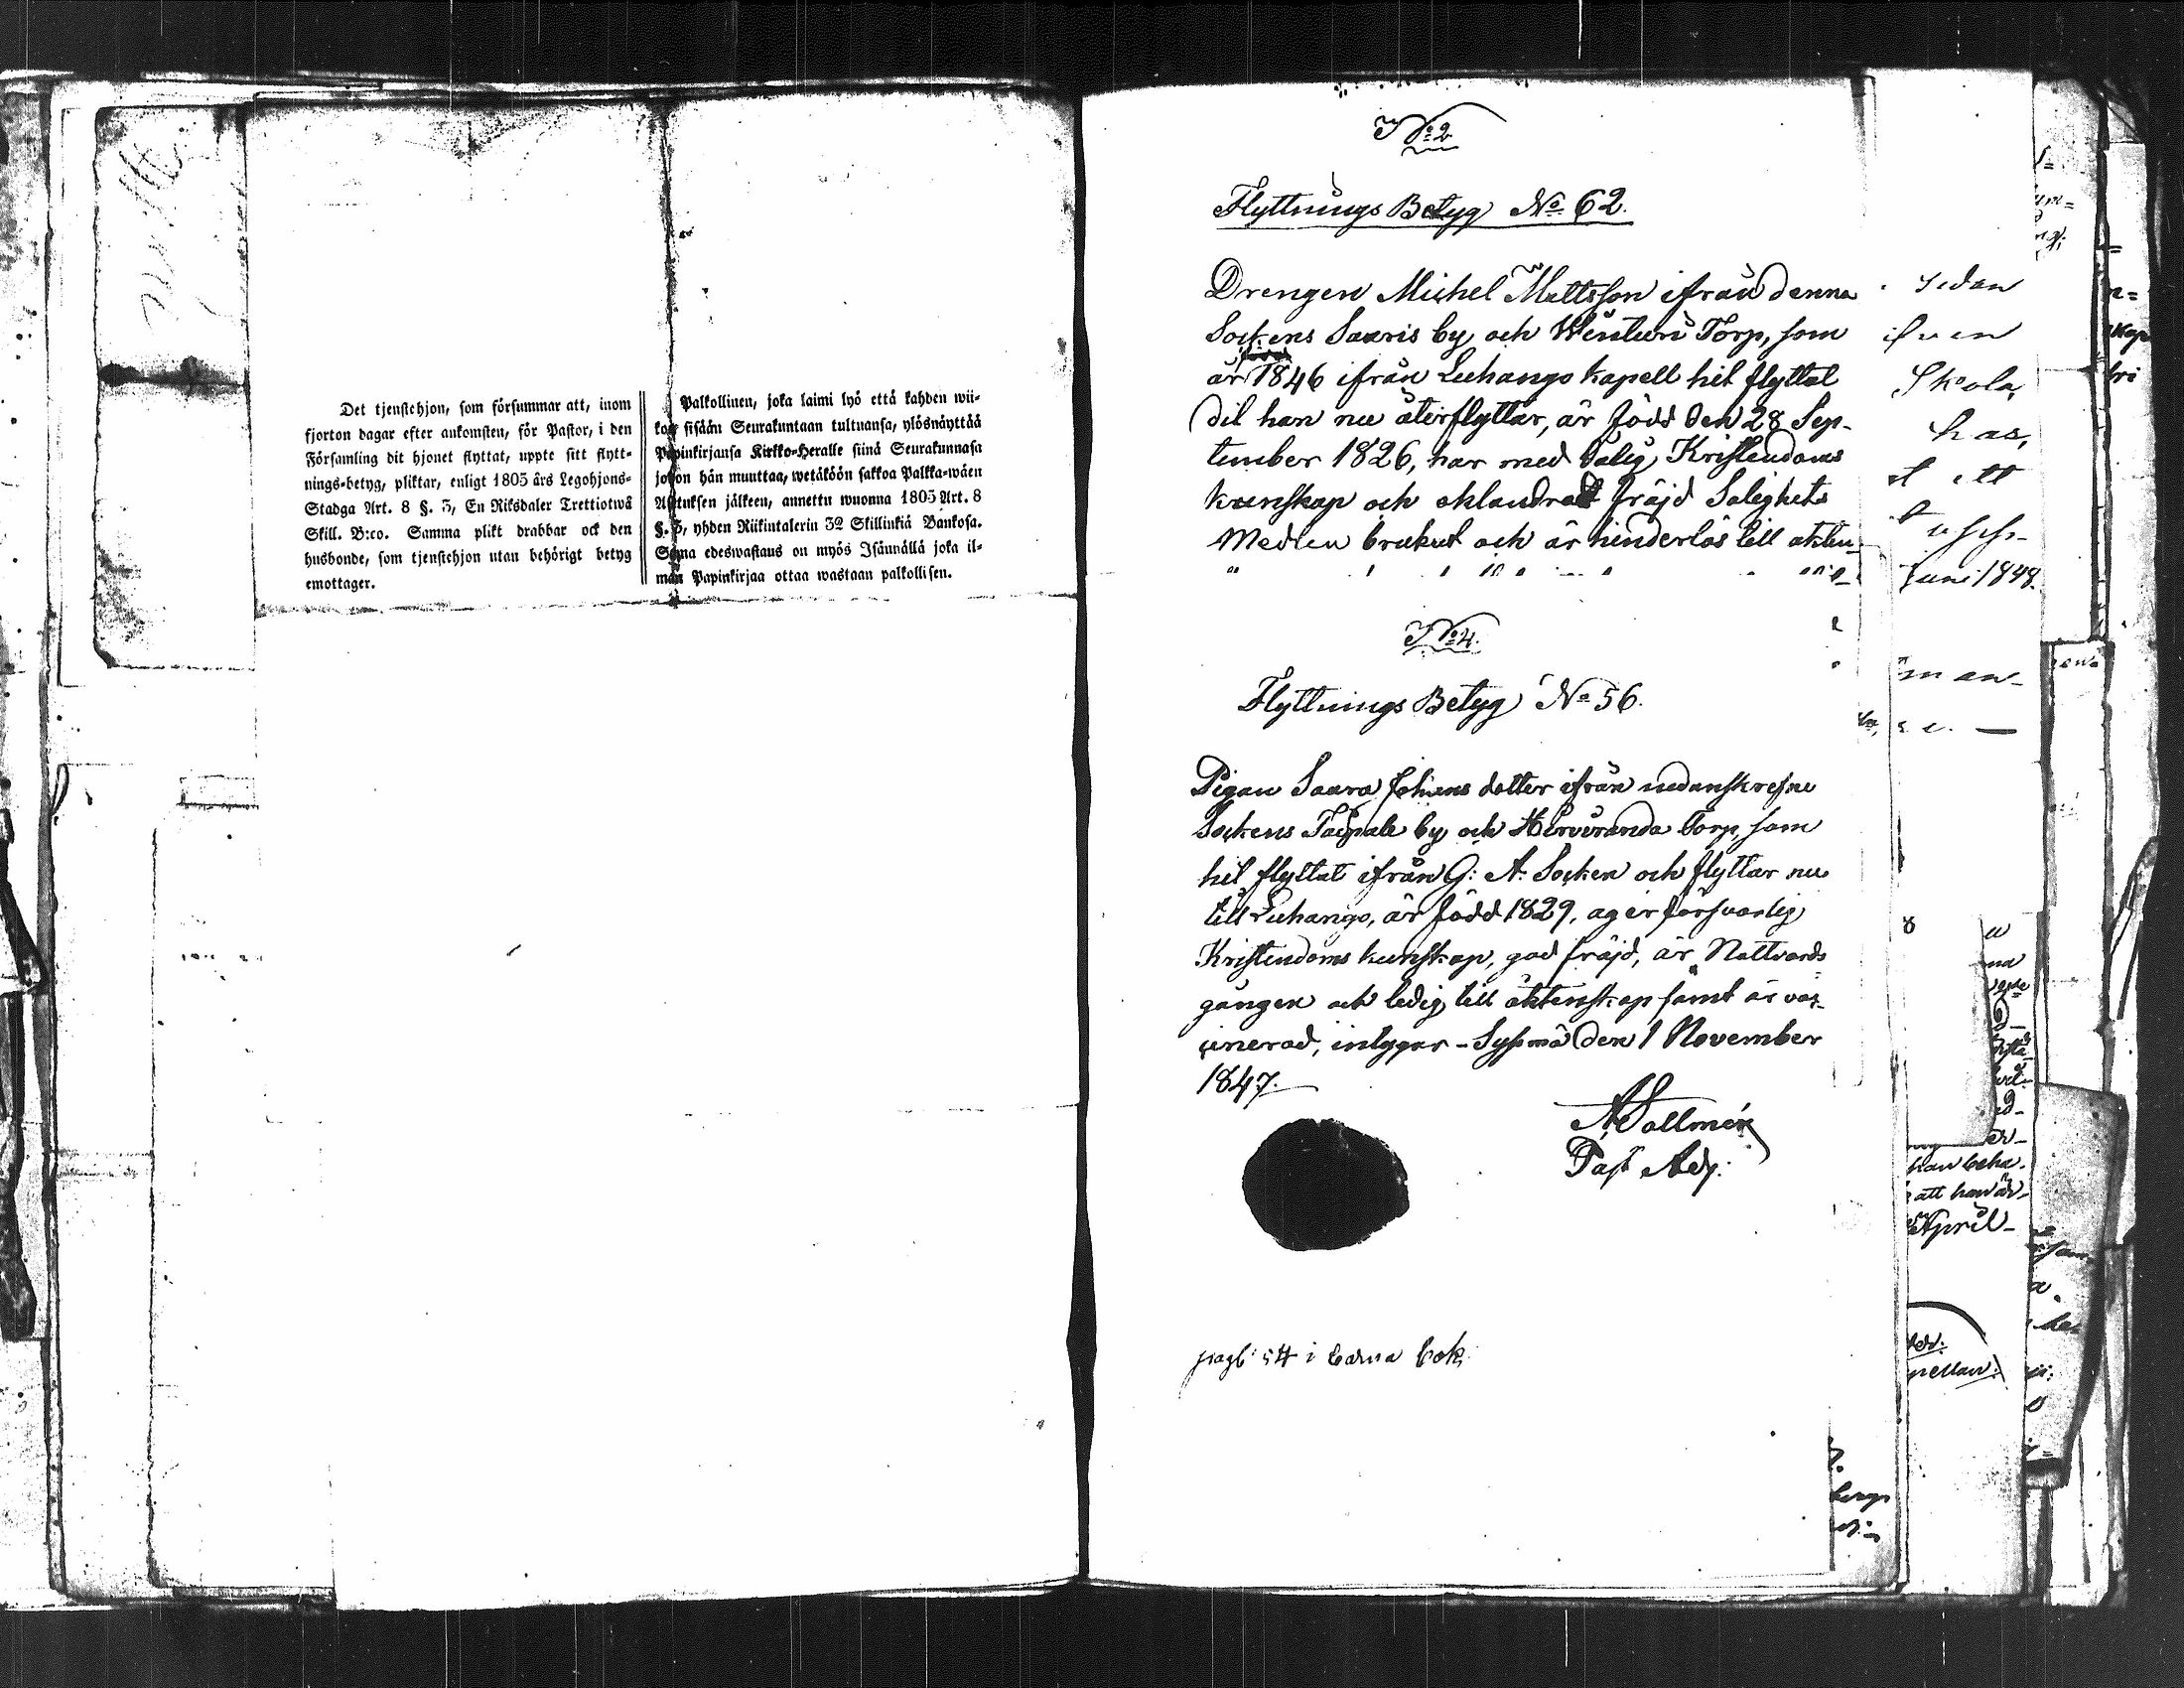 Det tjenstehjon, som försummar att, inom
fjorton dagar efter ankomsten, för Pastor, i den
Församling dit hjonet flyttat, uppte sitt flytt-
nings-betyg, pliktar, enligt 1805 års Legohjons-
Stadga Art. 8 §. 3, En Riksdaler Trettiotwå
Skill. B:co. Samma plikt drabbar ock den
husbonde, som tjenstehjon utan behörigt betyg
emottager.
Palkollinen, joka laimi lyö että kahden wii-
kon sisään Seurakuntaan tultuansa, ylösnäyttää
Papinkirjansa Kirkko-Heralle siinä Seurakunnasa
johon hän muuttaa, wetäköön sakkoa Palkka-wäen
Astuksen jälkeen, annettu wuonna 1805 Art. 8
§. 3, yhden Riikintalerin 32 Skillinkiä Bankosa.
Sama edeswastaus on myös Isännällä joka il-
man Papinkirjaa ottaa wastaan palkollisen.
No 2
Flyttnings Betyg No 62.
Drengen Michel Mattsson ifrån denna
Sockens Saaris by och Torp, som
år 1846 ifrån Luhango kapell hit flyttat
dit han nu återflyttar, är född den 28 Sep-
tember 1826, har med Kristendoms
kunskap och oklandrad fräjd Salighets
Medlen brukat och är hinderlös till äkten-
No 4.
Flyttnings Betyg No 56.
Pigan Saara Johans dotter ifrån nedanskrefne
Sockens Taipale by och Hirviranda Torp, som
hit flyttat ifrån G: A: Socken och flyttar nu
till Luhango, är född 1829, äger försvarlig
Kristendoms kunskap, god fräjd, är Nattvards
gången och ledig till äktenskap samt är vac-
cinerad, intygar - Sysmä den 1 November
1847.
A Sallmén
Past Adj:
pag: 54 i barna bok
sedan
Skola,
has,
ett
Juni 1848.
han beha-
att han är
April